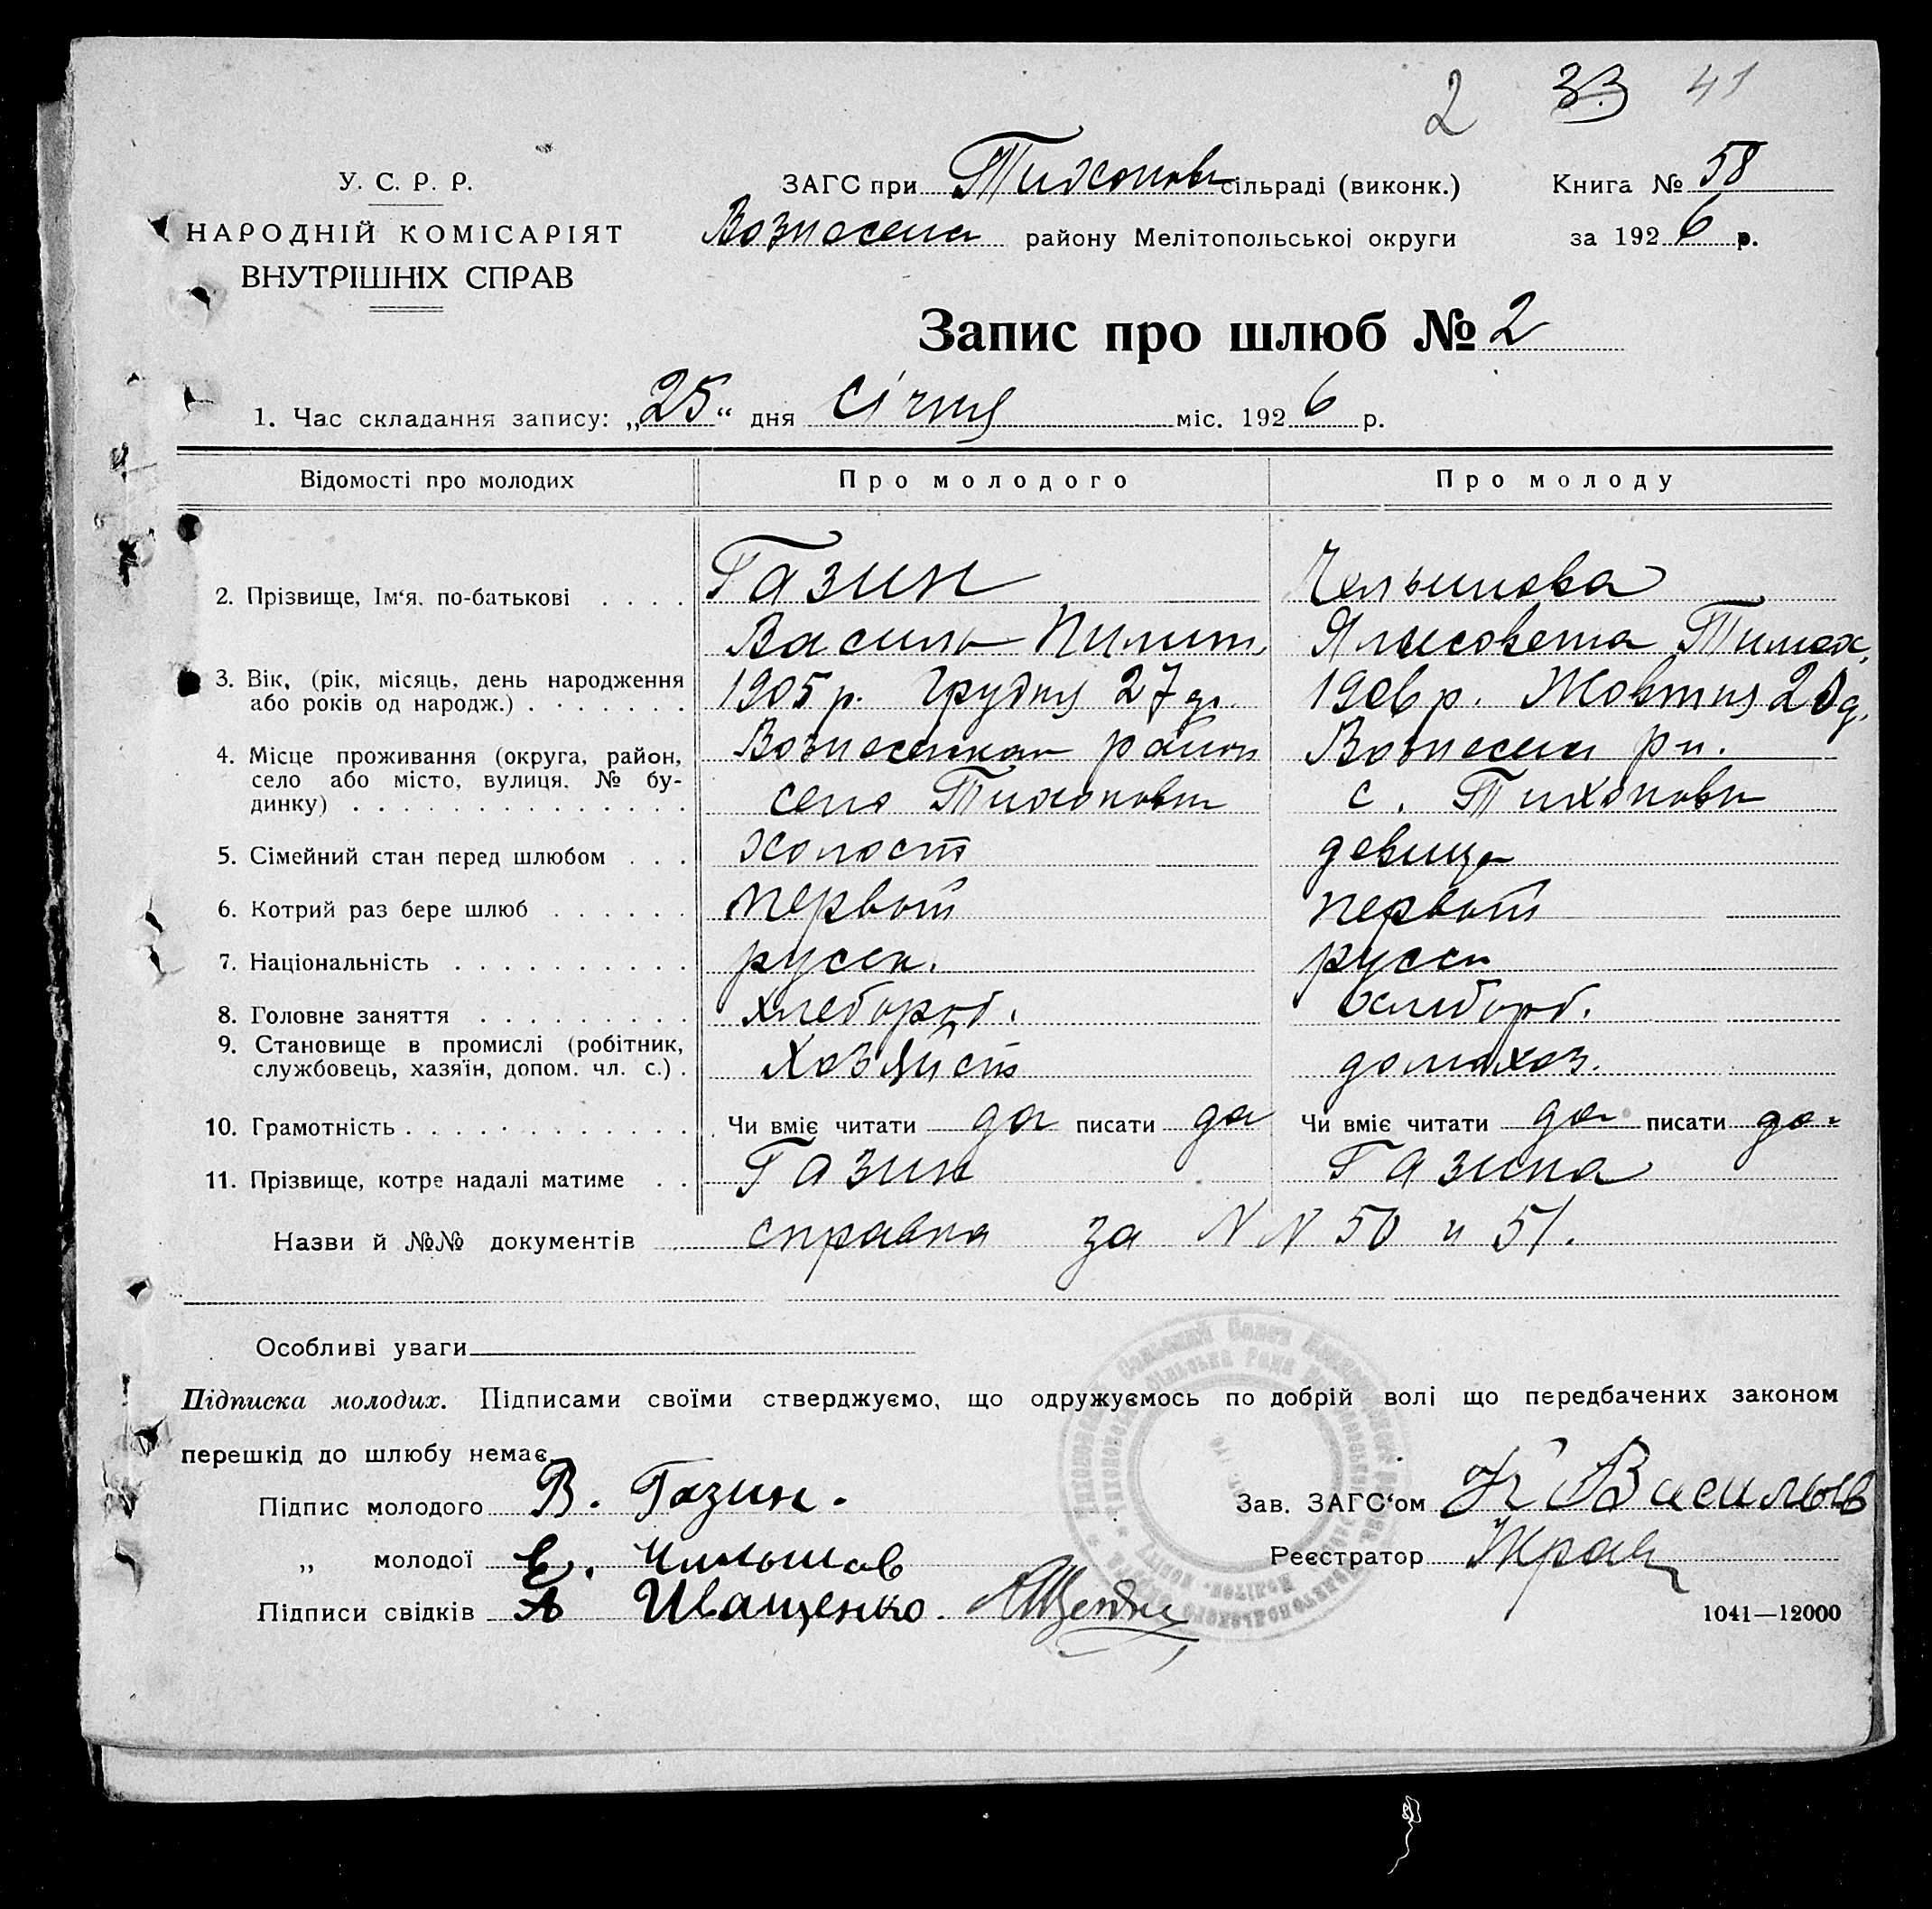 2 33 41
У. С. Р. Р.
НАРОДНІЙ КОМІСАРІЯТ
ВНУТРІШНІХ СПРАВ
ЗАГС при Тихоновк сільраді (виконк.) Книга № 58
Вознесенск району Мелітопольської округи за 1926 р.
Запис про шлюб № 2
1. Час складання запису: „25“ дня Січня міс. 1926 р.
Відомості про молодих Про молодого Про молоду
2. Прізвище, Ім‘я, по-батькові . . . . Газин
Василь Пилип.
Тимох.
3. Вік, (рік, місяць, день народження або років од народж.) 1905 р. Грудня 27 д. 1906 р. Жовтня 20 д.
4. Місце проживання (округа, район, село або місто, вулиця, № будинку) район
село Тихоновк с. Тихоновк
5. Сімейний стан перед шлюбом . . . холост девица
6. Котрий раз бере шлюб . . . . . . первый первый
7. Національність . . . . . . . . . . русск. русск
8. Головне заняття . . . . . . . . . хлебороб. хлебороб.
9. Становище в промислі (робітник, службовець, хазяїн, допом. чл. с.) . домохоз.
10. Грамотність . . . . . . . . . . . . . Чи вміє читати да писати да Чи вміє читати да писати да
11. Прізвище, котре надалі матиме . . Газин Газина
Назви й №№ документів справка за NN 50 и 51.
Особливі уваги
Підписка молодих. Підписами своїми стверджуємо, що одружуємось по добрій волі що передбачених законом
перешкід до шлюбу немає.
Підпис молодого В. Газин.
Зав. ЗАГС‘ом Васильев
„ молодої Е.
Реєстратор
Підписи свідків А Иващенко.
1041—12000